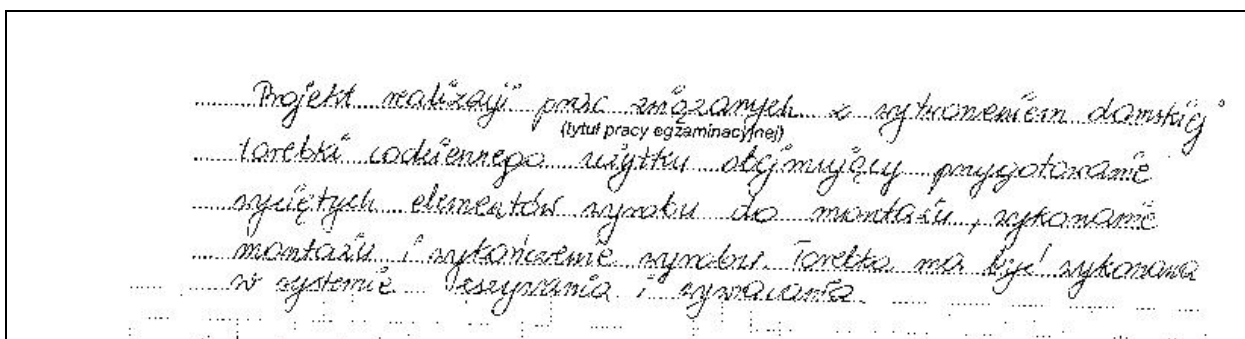 Projekt realizacji prac związanych z wytworzeniem damskiej
(tytuł pracy egzaminacyjnej)
torebki codziennego użytku obejmujący przygotowanie
wyciętych elementów wyrobu do montażu, wykonanie
montażu i wykończenie wyrobu. Torebka ma być wykonana
w systemie zszywania i wywracania.